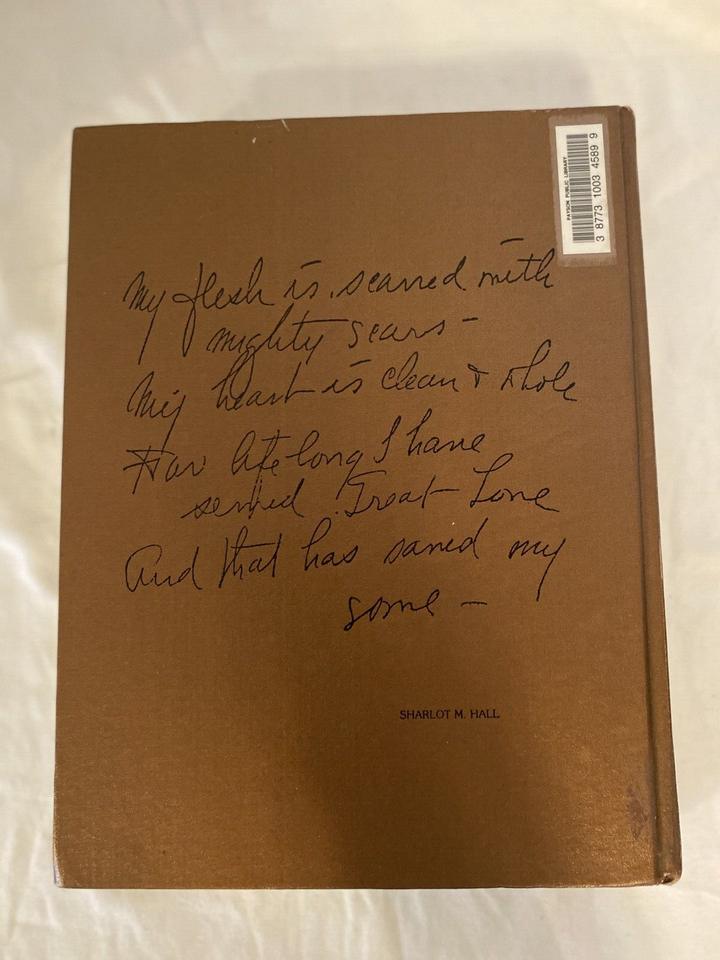 My flesh is scarred with
mighty scars –
My heart is clean & whole
For life long I have
served Great Love
And that has saved my
some –
SHARLOT M. HALL
PAYSON PUBLIC LIBRARY
3 8773 1003 4589 9